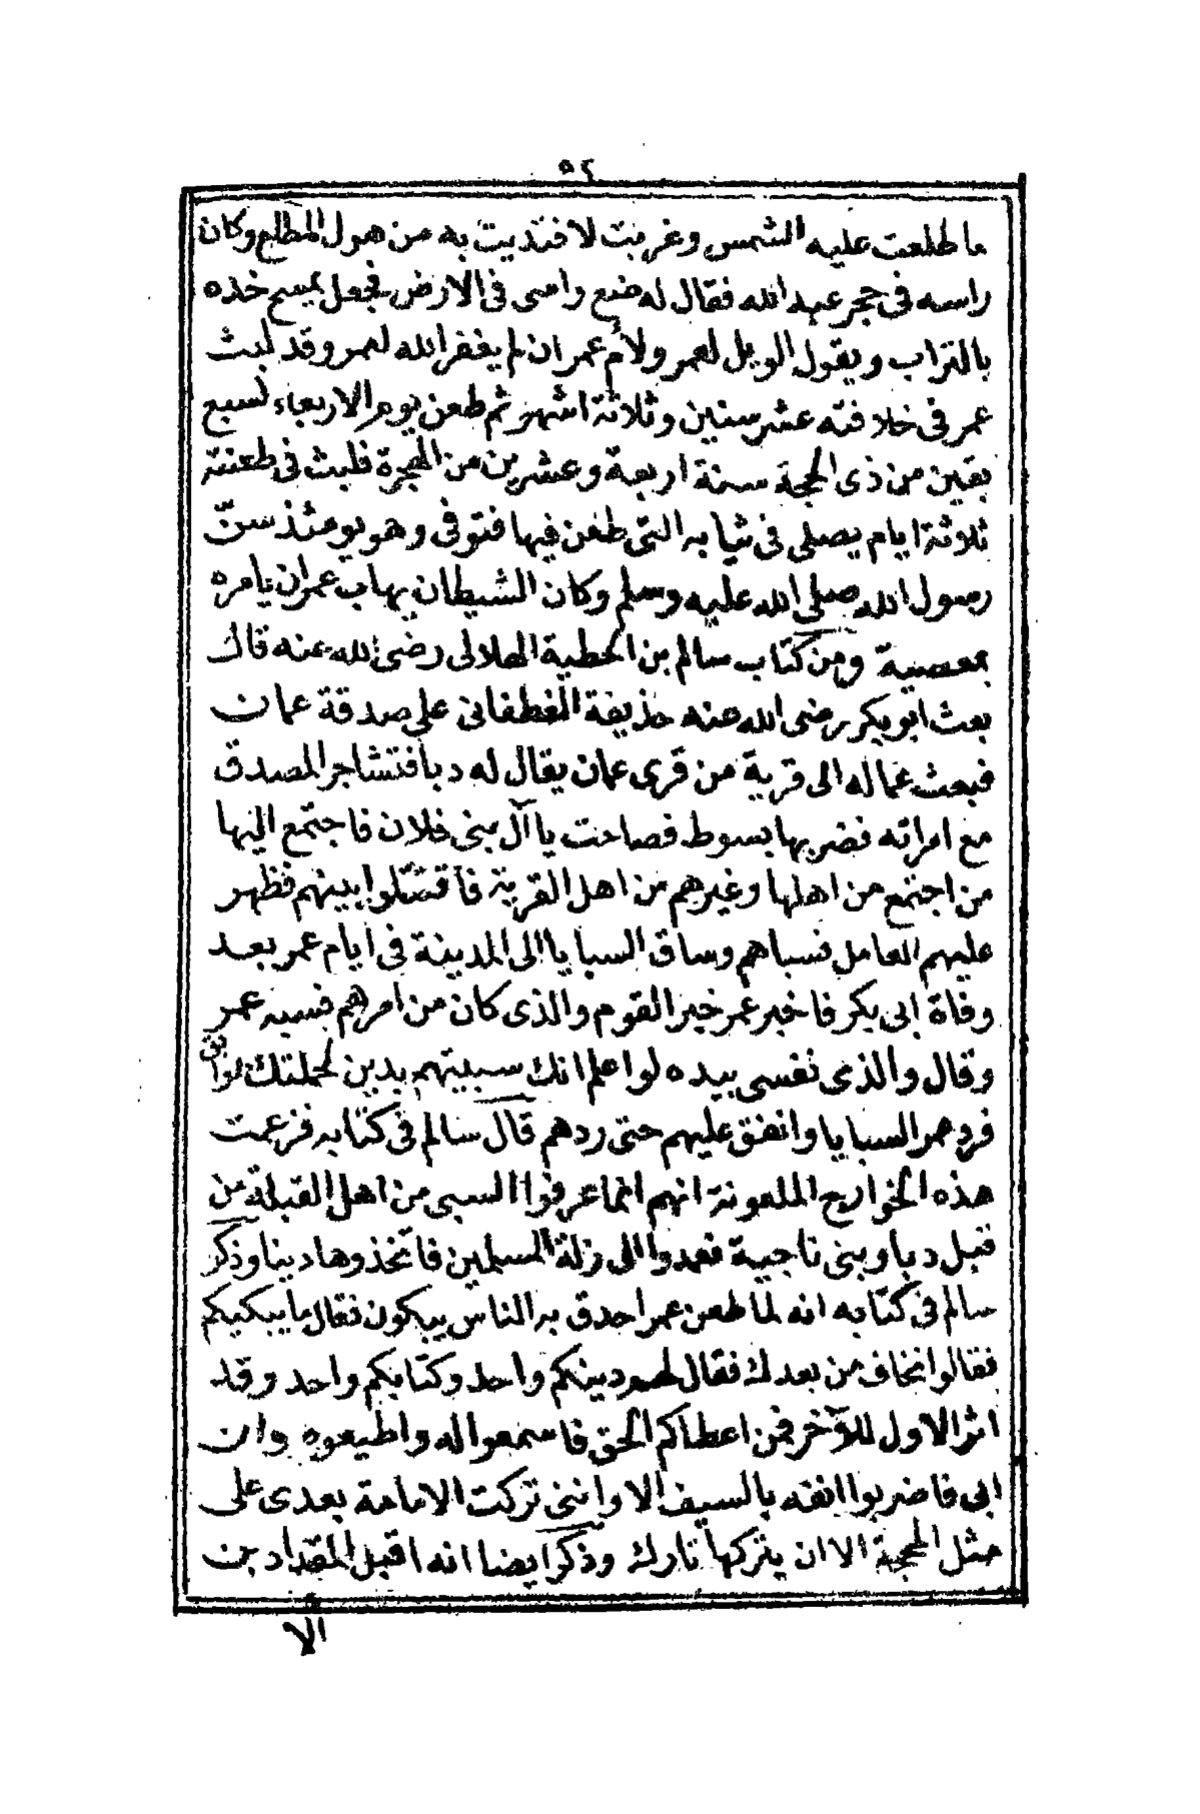 ٥٢
ما طلعت عليه الشمس وغربت لافتديت به من هول المطلع وكان
راسه في حجر عبد الله فقال له ضع راسي في الارض فجعل يمسح خده
بالتراب ويقول الويل لعمر ولأم عمر ان لم يغفر الله لعمر وقد لبث
عمر في خلافته عشر سنين وثلاثة اشهر ثم طعن يوم الاربعاء لسبع
بقين من ذي الحجة سنة اربعة وعشرين من الهجرة فلبث في طعنته
ثلاثة ايام يصلي في ثيابه التي طعن فيها فتوفي وهو يومئذ سن
رسول الله صلى الله عليه وسلم وكان الشيطان يهاب عمر ان يامره
بمعصية ومن كتاب سالم بن الحطية الهلالي رضي الله عنه قال
بعث ابو بكر رضي الله عنه حذيفة الغطفاني على صدقة عمان
فبعث عماله الى قرية من قرى عمان يقال له دبا فتشاجر المصدق
مع امراته فضربها بسوط فصاحت يا آل بني فلان فاجتمع اليها
من اجتمع من اهلها وغيرهم من اهل القرية فاقتتلوا بينهم فظهر
عليهم العامل فسباهم وساق السبايا الى المدينة في ايام عمر بعد
وفاة ابي بكر فاخبر عمر خبر القوم والذي كان من امرهم فسبه عمر
وقال والذي نفسي بيده لو اعلم انك سبيتهم بدين لحملتك
فردهم السبايا وانفق عليهم حتى ردهم قال سالم في كتابه فزعمت
هذه الخوارج الملعونة انهم انما عرفوا السبي من اهل القبلة من
قبل دبا وبني ناجية فعمدوا الى زلة المسلمين فاتخذوها دينا وذكر
سالم في كتابه انه لما طعن عمر احدق به الناس يبكون فقال ما يبكيكم
فقالوا نخاف من بعدك فقال لهم دينكم واحد وكتابكم واحد وقد
اثر الاول للآخر فمن اعطاكم الحق فاسمعوا له واطيعوه وان
ابى فاضربوا انفه بالسيف الا وانني تركت الامامة بعدي على
مثل المحجة الا ان يتركها تارك وذكر ايضا انه اقبل المقداد بن
الا